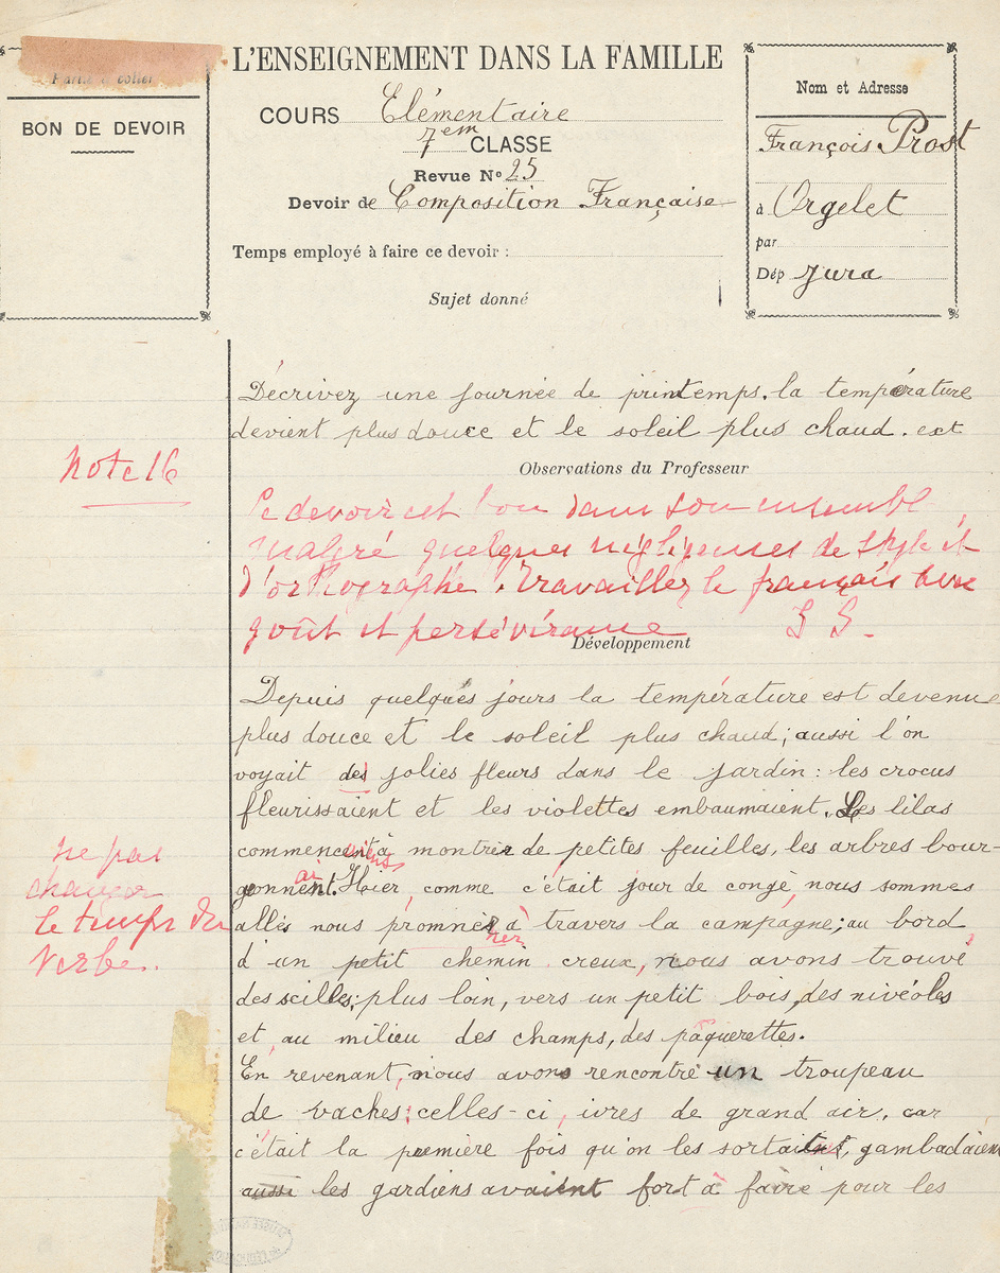 Partie à coller
BON DE DEVOIR
L'ENSEIGNEMENT DANS LA FAMILLE
COURS Elémentaire
7em CLASSE
Revue No 25
Devoir de Composition Française
Temps employé à faire ce devoir :
Sujet donné
Nom et Adresse
François Prost
à Orgelet
par
Dép Jura
Décrivez une journée de printemps. la température
devient plus douce et le soleil plus chaud. ext
Note 16
Observations du Professeur
Le devoir est bon dans son ensembl
malgré quelques négligences de style et
d'orthographe. Travaillez le français avec
goût et persévérance S S.
Développement
Depuis quelques jours la température est devenue
plus douce et le soleil plus chaud ; aussi l'on
voyait des jolies fleurs dans le jardin : les crocus
fleurissaient et les violettes embaumaient. Les lilas
commencent à montrer de petites feuilles, les arbres bour-
geonnent. Hier, comme c'était jour de congé, nous sommes
ai
ne pas
changer
le temps du
verbe.
allés nous promner à travers la campagne ; au bord
ner
d'un petit chemin creux, nous avons trouvé
des scilles ; plus loin, vers un petit bois, des nivéoles
et, au milieu des champs, des pâquerettes.
En revenant, nous avons rencontré un troupeau
de vaches : celles-ci, ivres de grand air, car
c'était la première fois qu'on les sortait, gambadaient
aussi les gardiens avaient fort à faire pour les